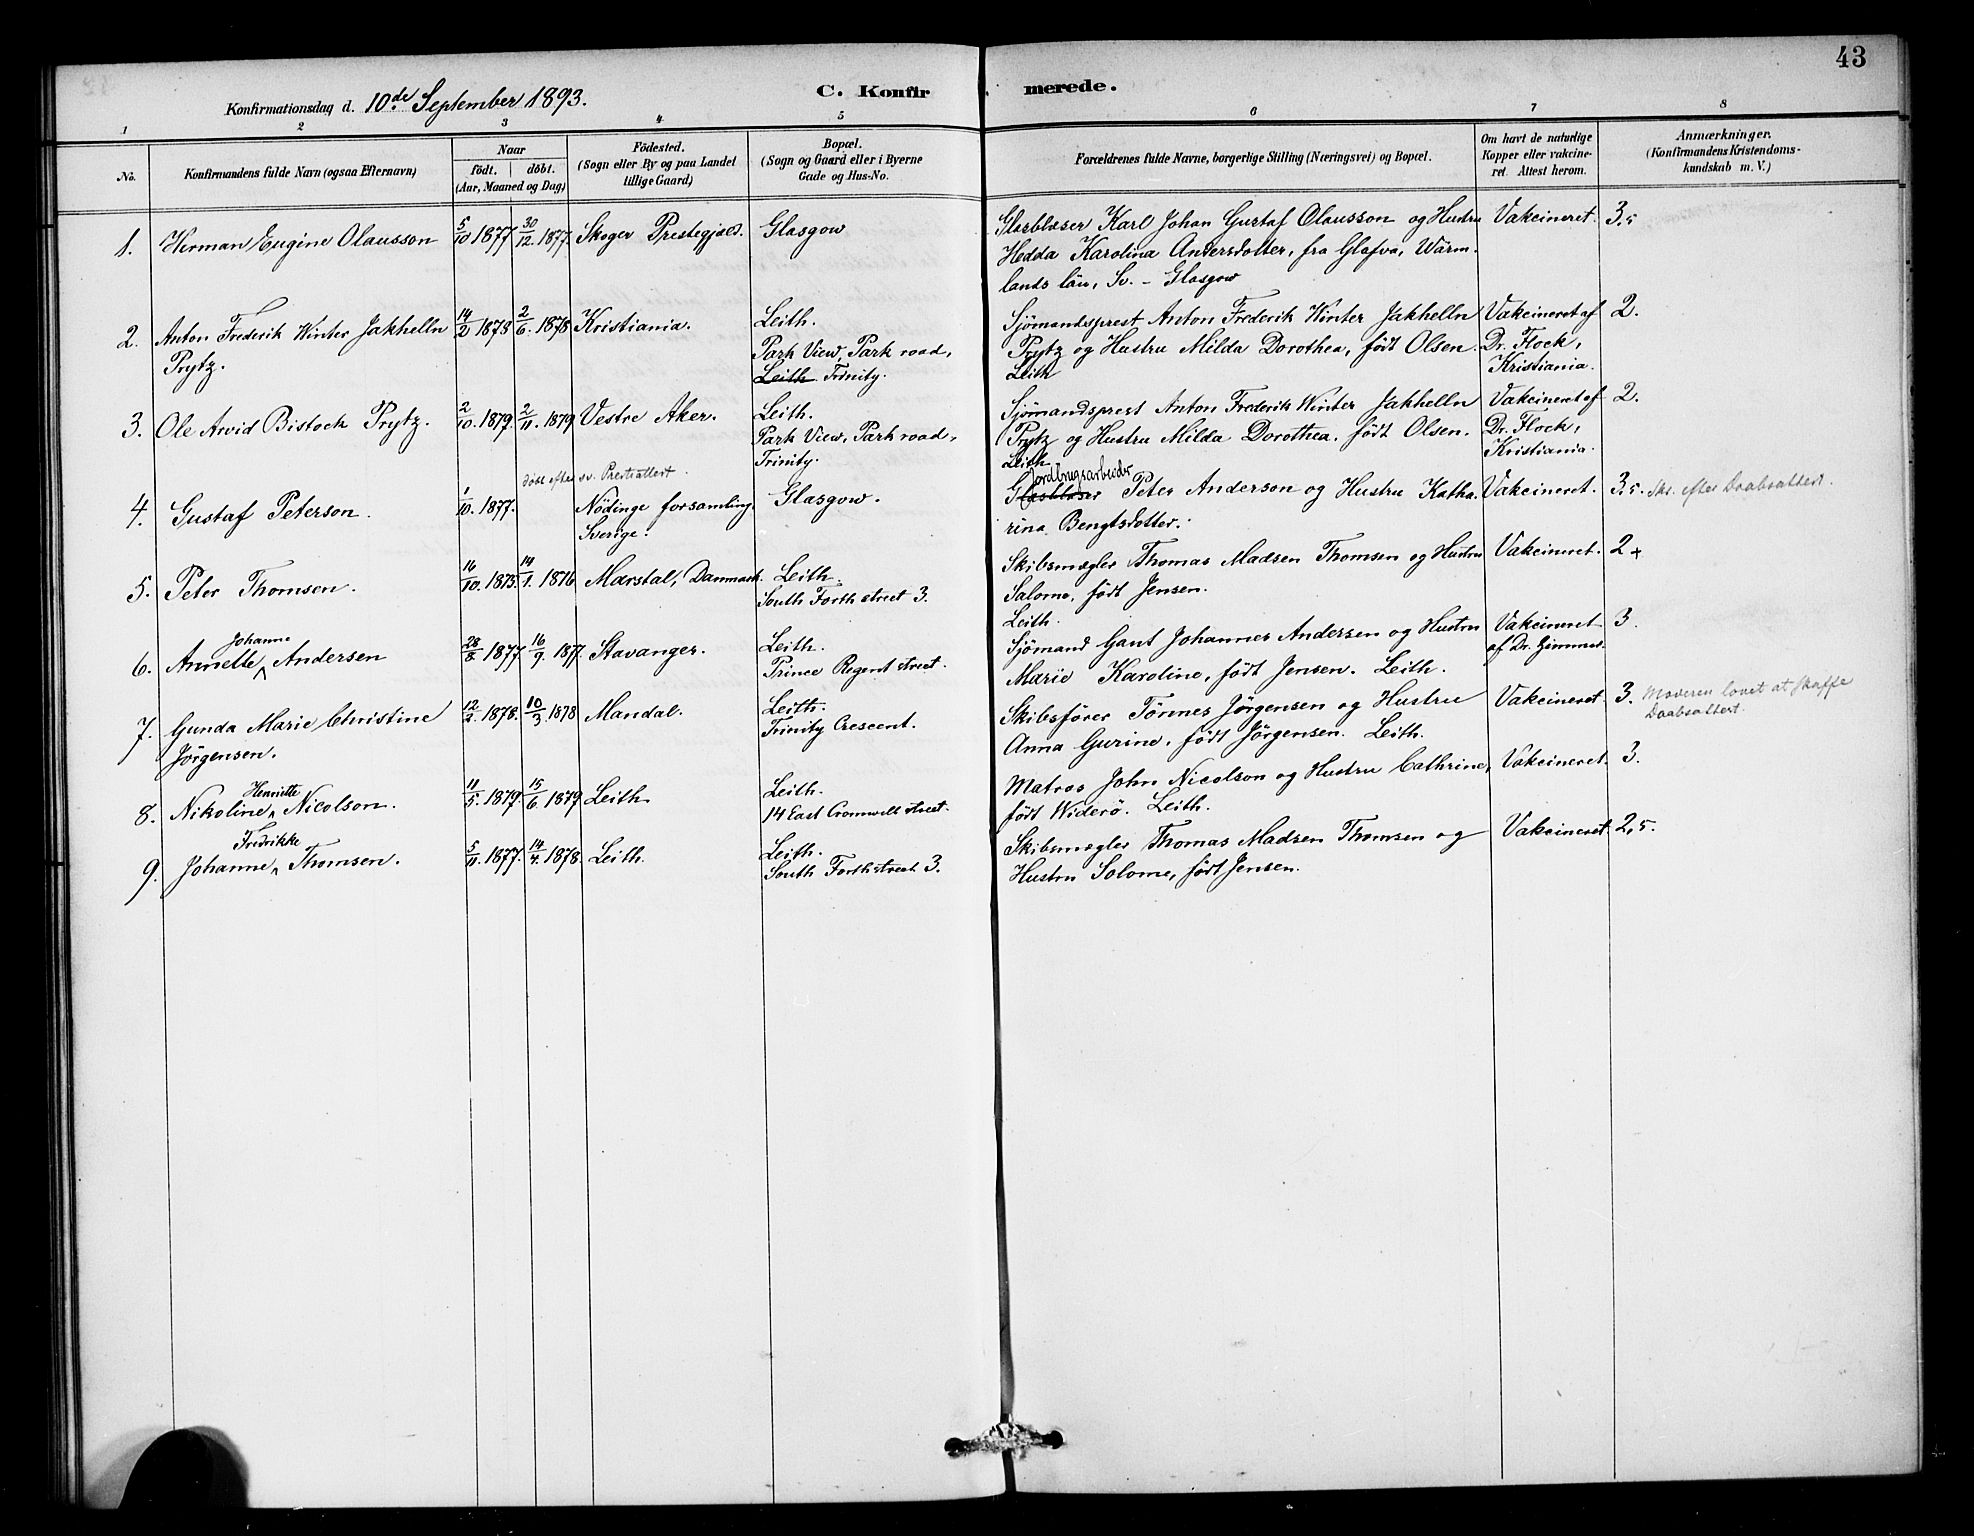 43
Konfirmationsdag d. 10de September 1893.
C. Konfir merede.
1 2 3 4 5 6 7 8
No.
Konfirmandens fulde Navn (ogsaa Efternavn)
Naar
födt. döbt.
(Aar, Maaned og Dag)
Födested.
(Sogn eller By og paa Landet
tillige Gaard)
Bopæl.
(Sogn og Gaard eller i Byerne
Gade og Hus-No.
Forældrenes fulde Navne, borgerlige Stilling (Næringsvei) og Bopæl.
Om havt de naturlige
Kopper eller vakcine-
ret. Attest herom.
Anmærkninger.
(Konfirmandens Kristendoms-
kundskab m. V.)
1. Herman Eugine Olausson 5/10 1877 30/12 1877. Skoger Prestegjæld. Glasgow Glasblæser Karl Johan Gustaf Olausson og Hustru Vakcineret. 3,5
Hedda Karolina Andersdotter, fra Glafva, Wärm-
lands län, Sv. - Glasgow
2. Anton Frederik Winter Jakhelln 14/2 1878 2/6. 1878 Kristiania. Leith. Sjömandsprest Anton Frederik Winter Jakhelln Vakcineret af 2.
Prytz. Park View, Park road, Prytz og Hustru Milda Dorothea, født Olsen. Dr. Flock,
Leith Trinity. Leith Kristiania.
3. Ole Arvid Bistock Prytz. 2/10. 1879. 2/11. 1879 Vestre Aker. Leith. Sjömandsprest Anton Frederik Winter Jakhelln Vakcineret af 2.
Park View, Park road, Prytz og Hustru Milda Dorothea, født Olsen. Dr. Flock,
Trinity. Leith Kristiania.
døbt efter sv. Prestattest. Jordbrugsarbeider
4. Gustaf Peterson. 1/10. 1877. Nödinge forsamling, Glasgow. Glasblæser Peter Anderson og Hustru Katha- Vakcineret. 3,5. Skr. efter Daabsattest.
Sverige. rina Bengtsdotter.
5. Peter Thomsen. 16/10. 1875. 14/1. 1876 Marstal, Danmark. Leith. Skibsmægler Thomas Madsen Thomsen og Hustru Vakcineret. 2+
South Forth street 3. Salome, født Jensen.
Leith.
Johanne
6. Annette ^ Andersen 28/8. 1877. 16/9. 1877. Stavanger. Leith. Sjömand Gant Johannes Andersen og Hustru Vakcineret 3.
Prince Regent street. Marie Karoline, født Jensen. Leith. af Dr.
7. Gunda Marie Christine 12/2. 1878. 10/3. 1878 Mandal. Leith. Skibsfører Tönnes Jörgensen og Hustru Vakcineret 3. Moderen lovet at skaffe
Jörgensen. Trinity Crescent. Anna Gurine, født Jörgensen. Leith. Daabsattest.
Henriette
8. Nikoline ^ Nicolson. 11/5. 1879. 15/6. 1879 Leith Leith. Matros John Nicolson og Hustru Cathrine, Vakcineret. 3.
14 East Cromwell street. født Widerö. Leith.
Fredrikke
9. Johanne ^ Thomsen. 5/11. 1877. 14/4. 1878. Leith. Leith. Skibsmægler Thomas Madsen Thomsen og Vakcineret. 2,5.
South Forth street 3. Hustru Salome, født Jensen.